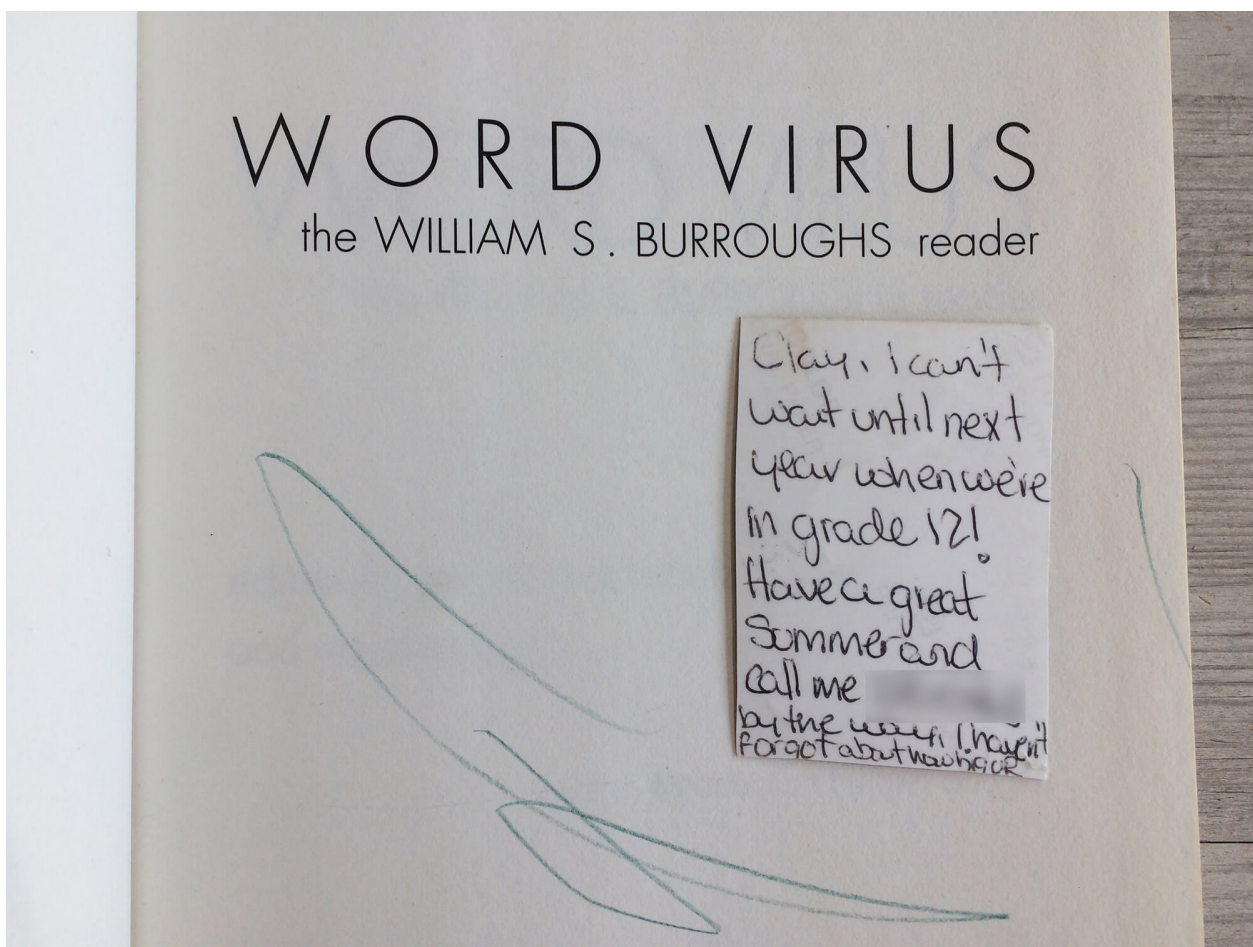 WORD VIRUS
the WILLIAM S. BURROUGHS reader
Clay, I can't
wait until next
year when we're
in grade 12!
Have a great
Summer and
call me
by the way, I haven't
forgot about how